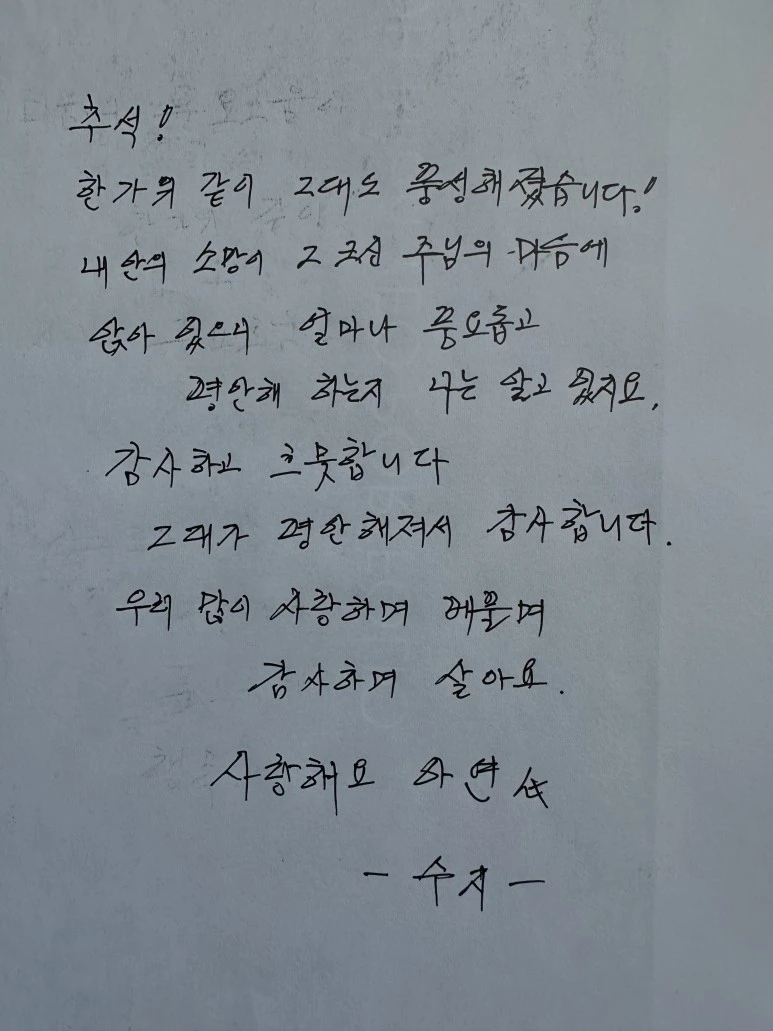 추석!
한가위 같이 그대도 풍성해졌습니다!
내 안의 소망이 그 크신 주님의 마음에
앉아 있으니 얼마나 풍요롭고
평안해 하는지 나는 알고 있지요.
감사하고 흐뭇합니다
그대가 평안해져서 감사합니다.
우리 많이 사랑하며 베풀며
감사하며 살아요.
사랑해요 하연
- 수지 -